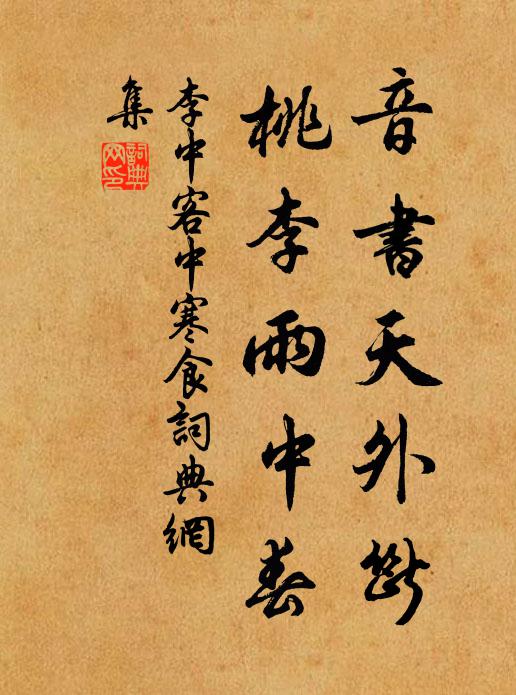 音書天外斷
桃李雨中春
李中客中寒食詞典網
集
詞典网印